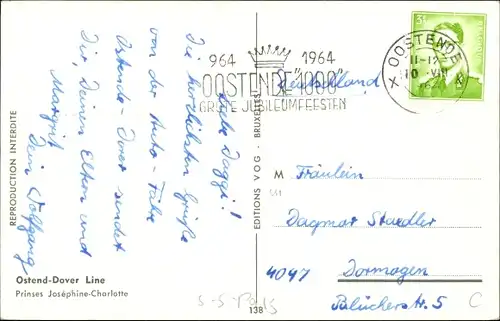 Liebe Daggi!
Die herzlichsten Grüße
von der Auto-Fähre
Ostende-Dover sendet
Dir, Deinen Eltern und
Margrit
Dein Wolfgang
REPRODUCTION INTERDITE
Ostend-Dover Line
Prinses Joséphine-Charlotte
EDITIONS V.O.G. - BRUXELLES
138
964 1964
OOSTENDE "1000"
GROTE JUBILEUMFEESTEN
Deutschland
X OOSTENDE
11-12
10 VIII
3F
M
Fräulein
Dagmar Staedler
4047 Dormagen
Blücherstr. 5
C